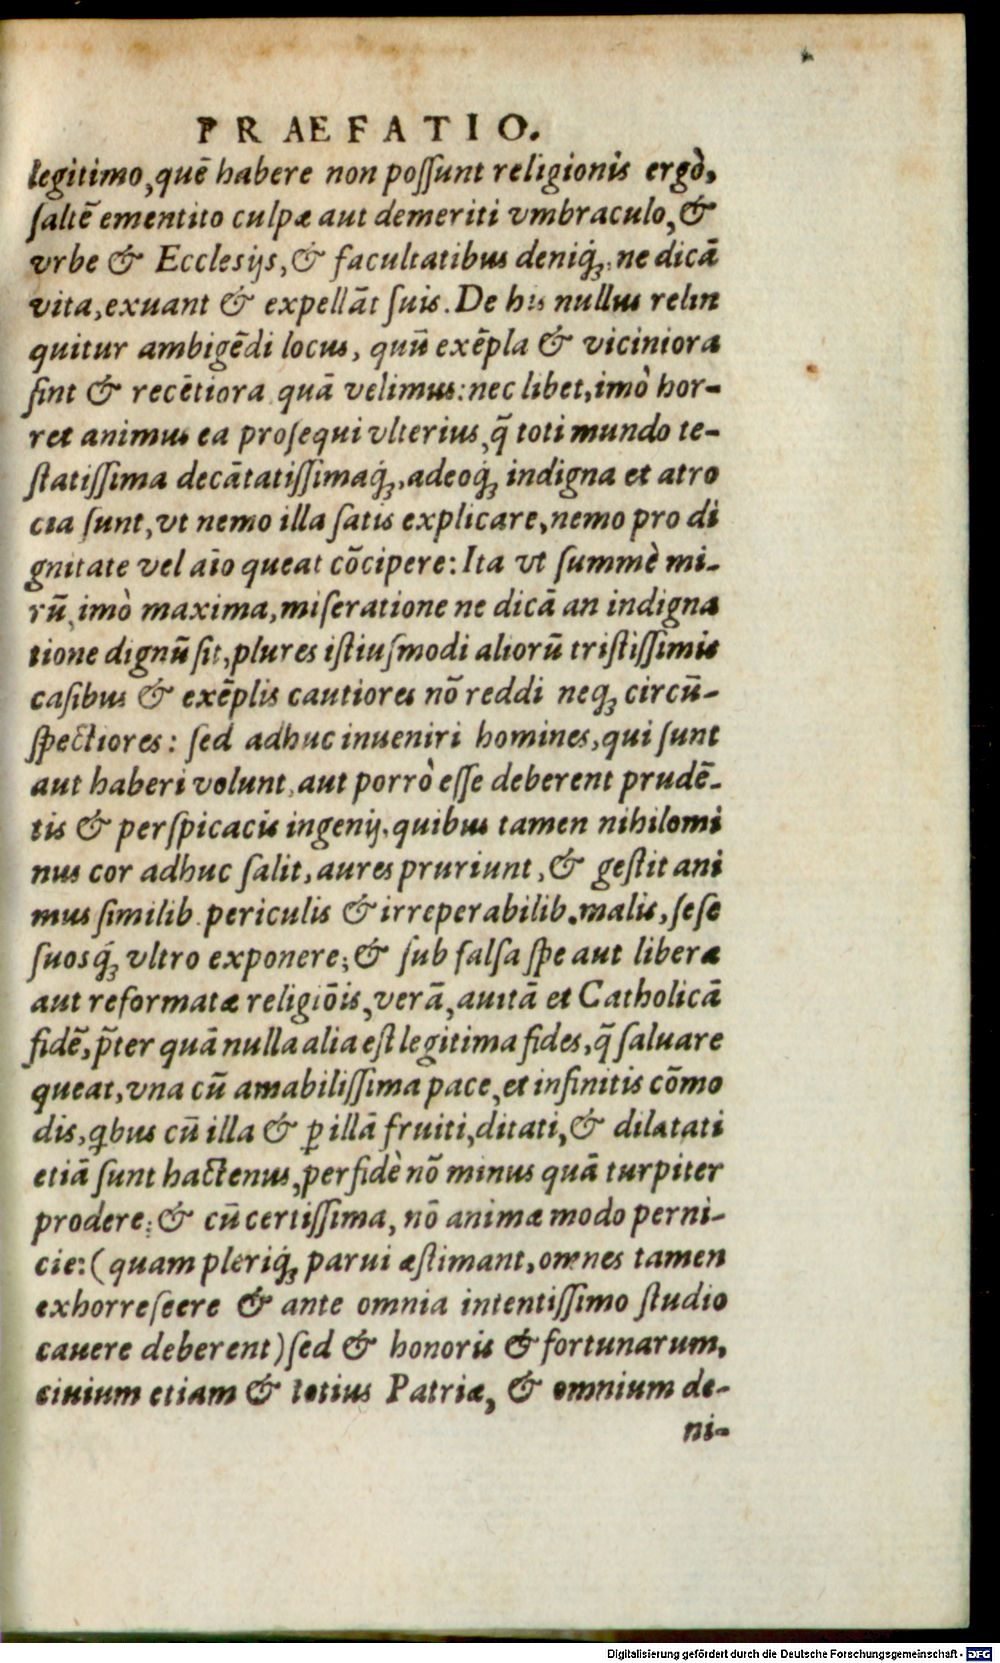 PRAEFATIO.
legitimo, quẽ habere non possunt religionis ergò,
saltẽ ementito culpæ aut demeriti vmbraculo, &
vrbe & Ecclesijs, & facultatibus deniq́;, ne dicã
vita, exuant & expellãt suis. De his nullus relin
quitur ambigẽdi locus, quũ exẽpla & viciniora
sint & recẽtiora quã velimus: nec libet, imò hor-
ret animus ea prosequi vlterius, q̃ toti mundo te-
statissima decãtatissimaq́;, adeoq́; indigna et atro
cia sunt, vt nemo illa satis explicare, nemo pro di
gnitate vel aĩo queat cõcipere: Ita vt summè mi-
rũ, imò maxima, miseratione ne dicã an indigna
tione dignũ sit, plures istiusmodi aliorũ tristissimis
casibus & exẽplis cautiores nõ reddi neq; circũ-
spectiores: sed adhuc inueniri homines, qui sunt
aut haberi volunt, aut porrò esse deberent prudẽ-
tis & perspicacis ingenij, quibus tamen nihilomi
nus cor adhuc salit, aures pruriunt, & gestit ani
mus similib. periculis & irreperabilib. malis, sese
suosq́; vltro exponere; & sub falsa spe aut liberæ
aut reformatæ religiõis, verã, auitã et Catholicã
fidẽ, p̃ter quã nulla alia est legitima fides, q̃ saluare
queat, vna cũ amabilissima pace, et infinitis cõmo
dis, qibus cũ illa & ꝑ illã fruiti, ditati, & dilatati
etiã sunt hactenus, perfidè nõ minus quã turpiter
prodere; & cũ certissima, nõ animæ modo perni-
cie: (quam pleriq́; parui æstimant, omnes tamen
exhorreseere & ante omnia intentissimo studio
cauere deberent) sed & honoris & fortunarum,
ciuium etiam & totius Patriæ, & omnium de-
ni-
Digitalisierung gefördert durch die Deutsche Forschungsgemeinschaft - DFG